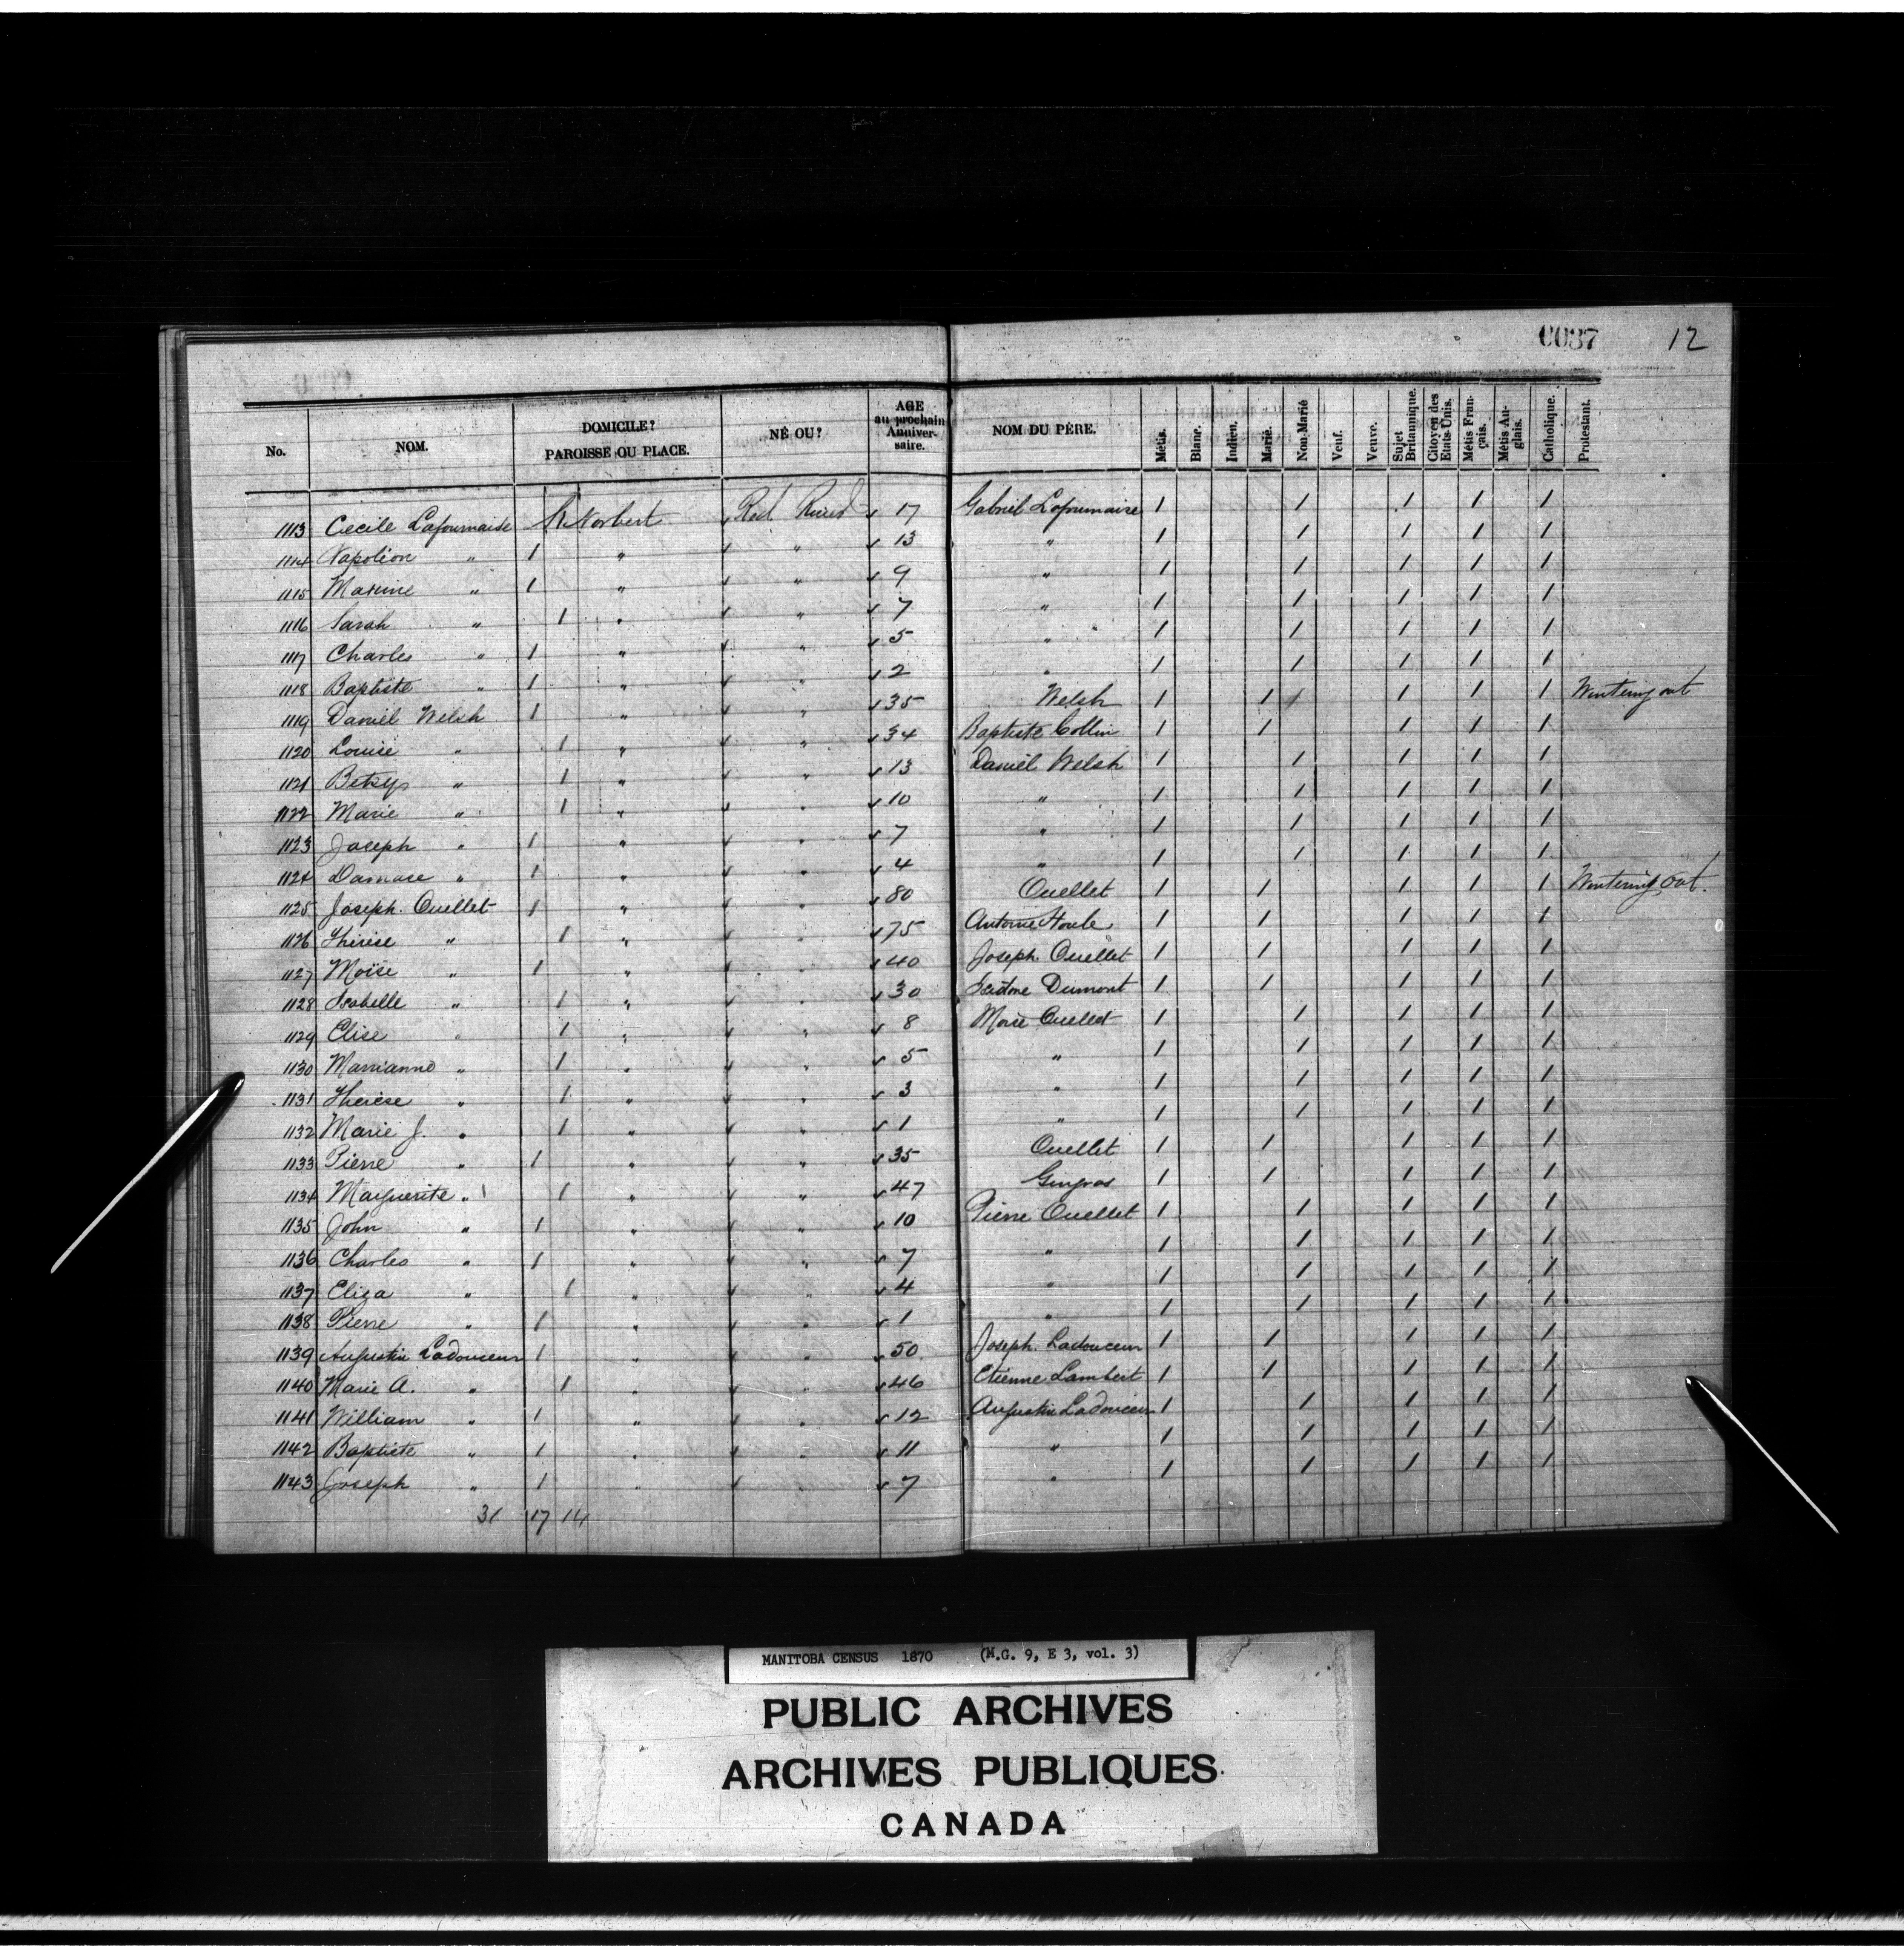 0037 12
No. NOM. DOMICILE? PAROISSE OU PLACE. NÉ OU? AGE au prochain Anniversaire. NOM DU PÈRE. Métis. Blanc. Indien. Marié. Non-Marié Veuf. Veuve. Sujet Britannique. Citoyen des Etats-Unis. Métis Français. Métis Anglais. Catholique. Protestant.
1113 Cecile Lafournaise St Norbert Red River 17 Gabriel Lafournaise 1 1 1 1 1
1114 Napoléon " 1 " " 13 " 1 1 1 1 1
1115 Maxime " 1 " " 9 " 1 1 1 1 1
1116 Sarah " 1 " " 7 " 1 1 1 1 1
1117 Charles " 1 " " 5 " 1 1 1 1 1
1118 Baptiste " 1 " " 2 " 1 1 1 1 1
1119 Daniel Welsh 1 " " 35 Welsh 1 1 1 1 1 Wintering out
1120 Louise " 1 " " 34 Baptiste Collin 1 1 1 1 1
1121 Betsy " 1 " " 13 Daniel Welsh 1 1 1 1 1
1122 Marie " 1 " " 10 " 1 1 1 1 1
1123 Joseph " 1 " " 7 " 1 1 1 1 1
1124 Damase " 1 " " 4 " 1 1 1 1 1
1125 Joseph Ouellet 1 " " 80 Ouellet 1 1 1 1 1 Wintering out.
1126 Thérèse " 1 " " 75 Antoine Houle 1 1 1 1 1
1127 Moïse " 1 " " 40 Joseph Ouellet 1 1 1 1 1
1128 Isabelle " 1 " " 30 Isidore Dumont 1 1 1 1 1
1129 Elise " 1 " " 8 Moise Ouellet 1 1 1 1 1
1130 Marrianne " 1 " " 5 " 1 1 1 1 1
1131 Thérèse " 1 " " 3 " 1 1 1 1 1
1132 Marie J. " 1 " " 1 " 1 1 1 1 1
1133 Pierre " 1 " " 35 Ouellet 1 1 1 1 1
1134 Marguerite " 1 " " 47 Gingras 1 1 1 1 1
1135 John " 1 " " 10 Pierre Ouellet 1 1 1 1 1
1136 Charles " 1 " " 7 " 1 1 1 1 1
1137 Eliza " 1 " " 4 " 1 1 1 1 1
1138 Pierre " 1 " " 1 " 1 1 1 1 1
1139 Augustin Ladouceur 1 " " 50 Joseph Ladouceur 1 1 1 1 1
1140 Marie A. " 1 " " 46 Etienne Lambert 1 1 1 1 1
1141 William " 1 " " 12 Augustin Ladouceur 1 1 1 1 1
1142 Baptiste " 1 " " 11 " 1 1 1 1 1
1143 Joseph " 1 " " 7 " 1 1 1 1 1
31 17 14
MANITOBA CENSUS 1870 (M.G. 9, E 3, vol. 3)
PUBLIC ARCHIVES
ARCHIVES PUBLIQUES
CANADA